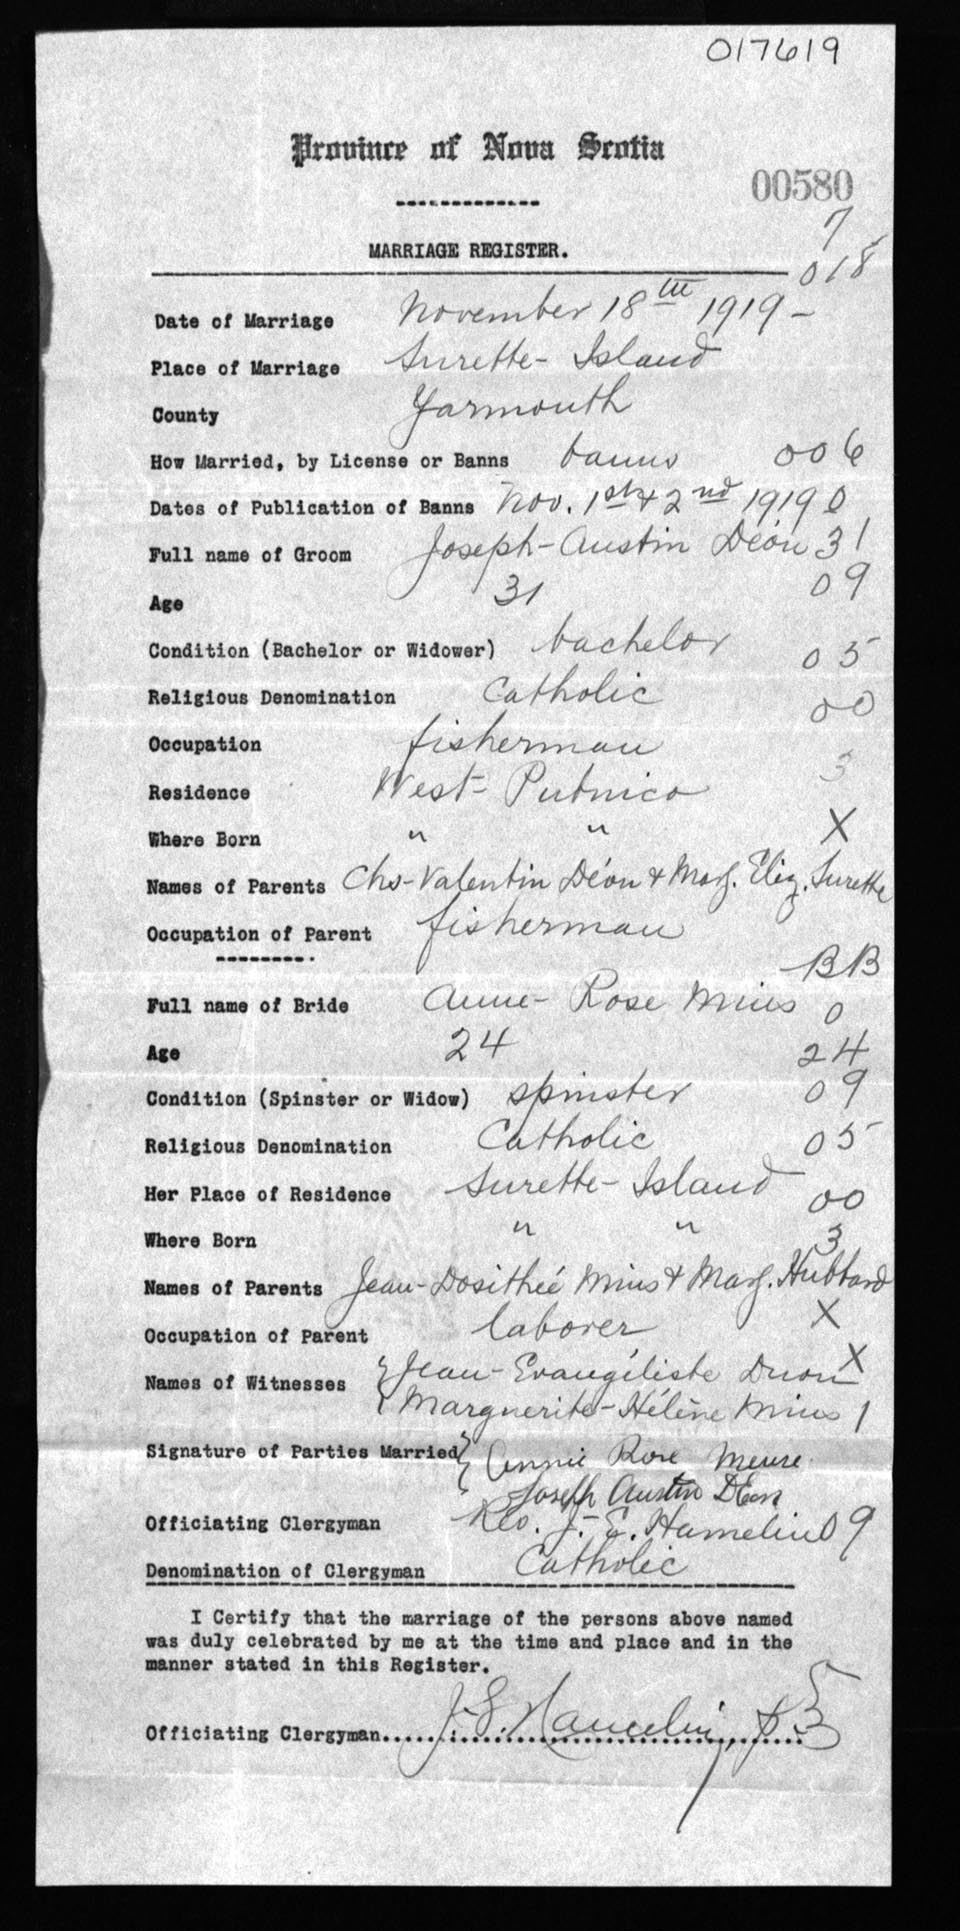 017619
Province of Nova Scotia
00580
7
MARRIAGE REGISTER.
018
Date of Marriage November 18th 1919 –
Place of Marriage Surette- Island
County Yarmouth
How Married, by License or Banns banns 006
Dates of Publication of Banns Nov. 1st & 2nd 1919 0
Full name of Groom Joseph-Austin Déon 31
Age 31 09
Condition (Bachelor or Widower) bachelor 05
Religious Denomination Catholic 00
Occupation fisherman
Residence West- Pubnico 3
Where Born " " X
Names of Parents Chs-Valentin Déon & Marg. Eliz. Surette
Occupation of Parent fisherman
BB
Full name of Bride Anne- Rose Mius 0
Age 24 24
Condition (Spinster or Widow) spinster 09
Religious Denomination Catholic 05
Her Place of Residence Surette- Island 00
Where Born " " 3
Names of Parents Jean-Dosithée Mius & Marg. Hubbard
Occupation of Parent laborer X
Names of Witnesses { Jean-Evangéliste Duon X
Marguerite-Hélène Mius 1
Signature of Parties Married { Annie Rose Meuse
Joseph Austin DEon
Officiating Clergyman Rev. J. E. Hamelin 09
Denomination of Clergyman Catholic
I Certify that the marriage of the persons above named
was duly celebrated by me at the time and place and in the
manner stated in this Register.
5
Officiating Clergyman J. E. Hamelin, p 3